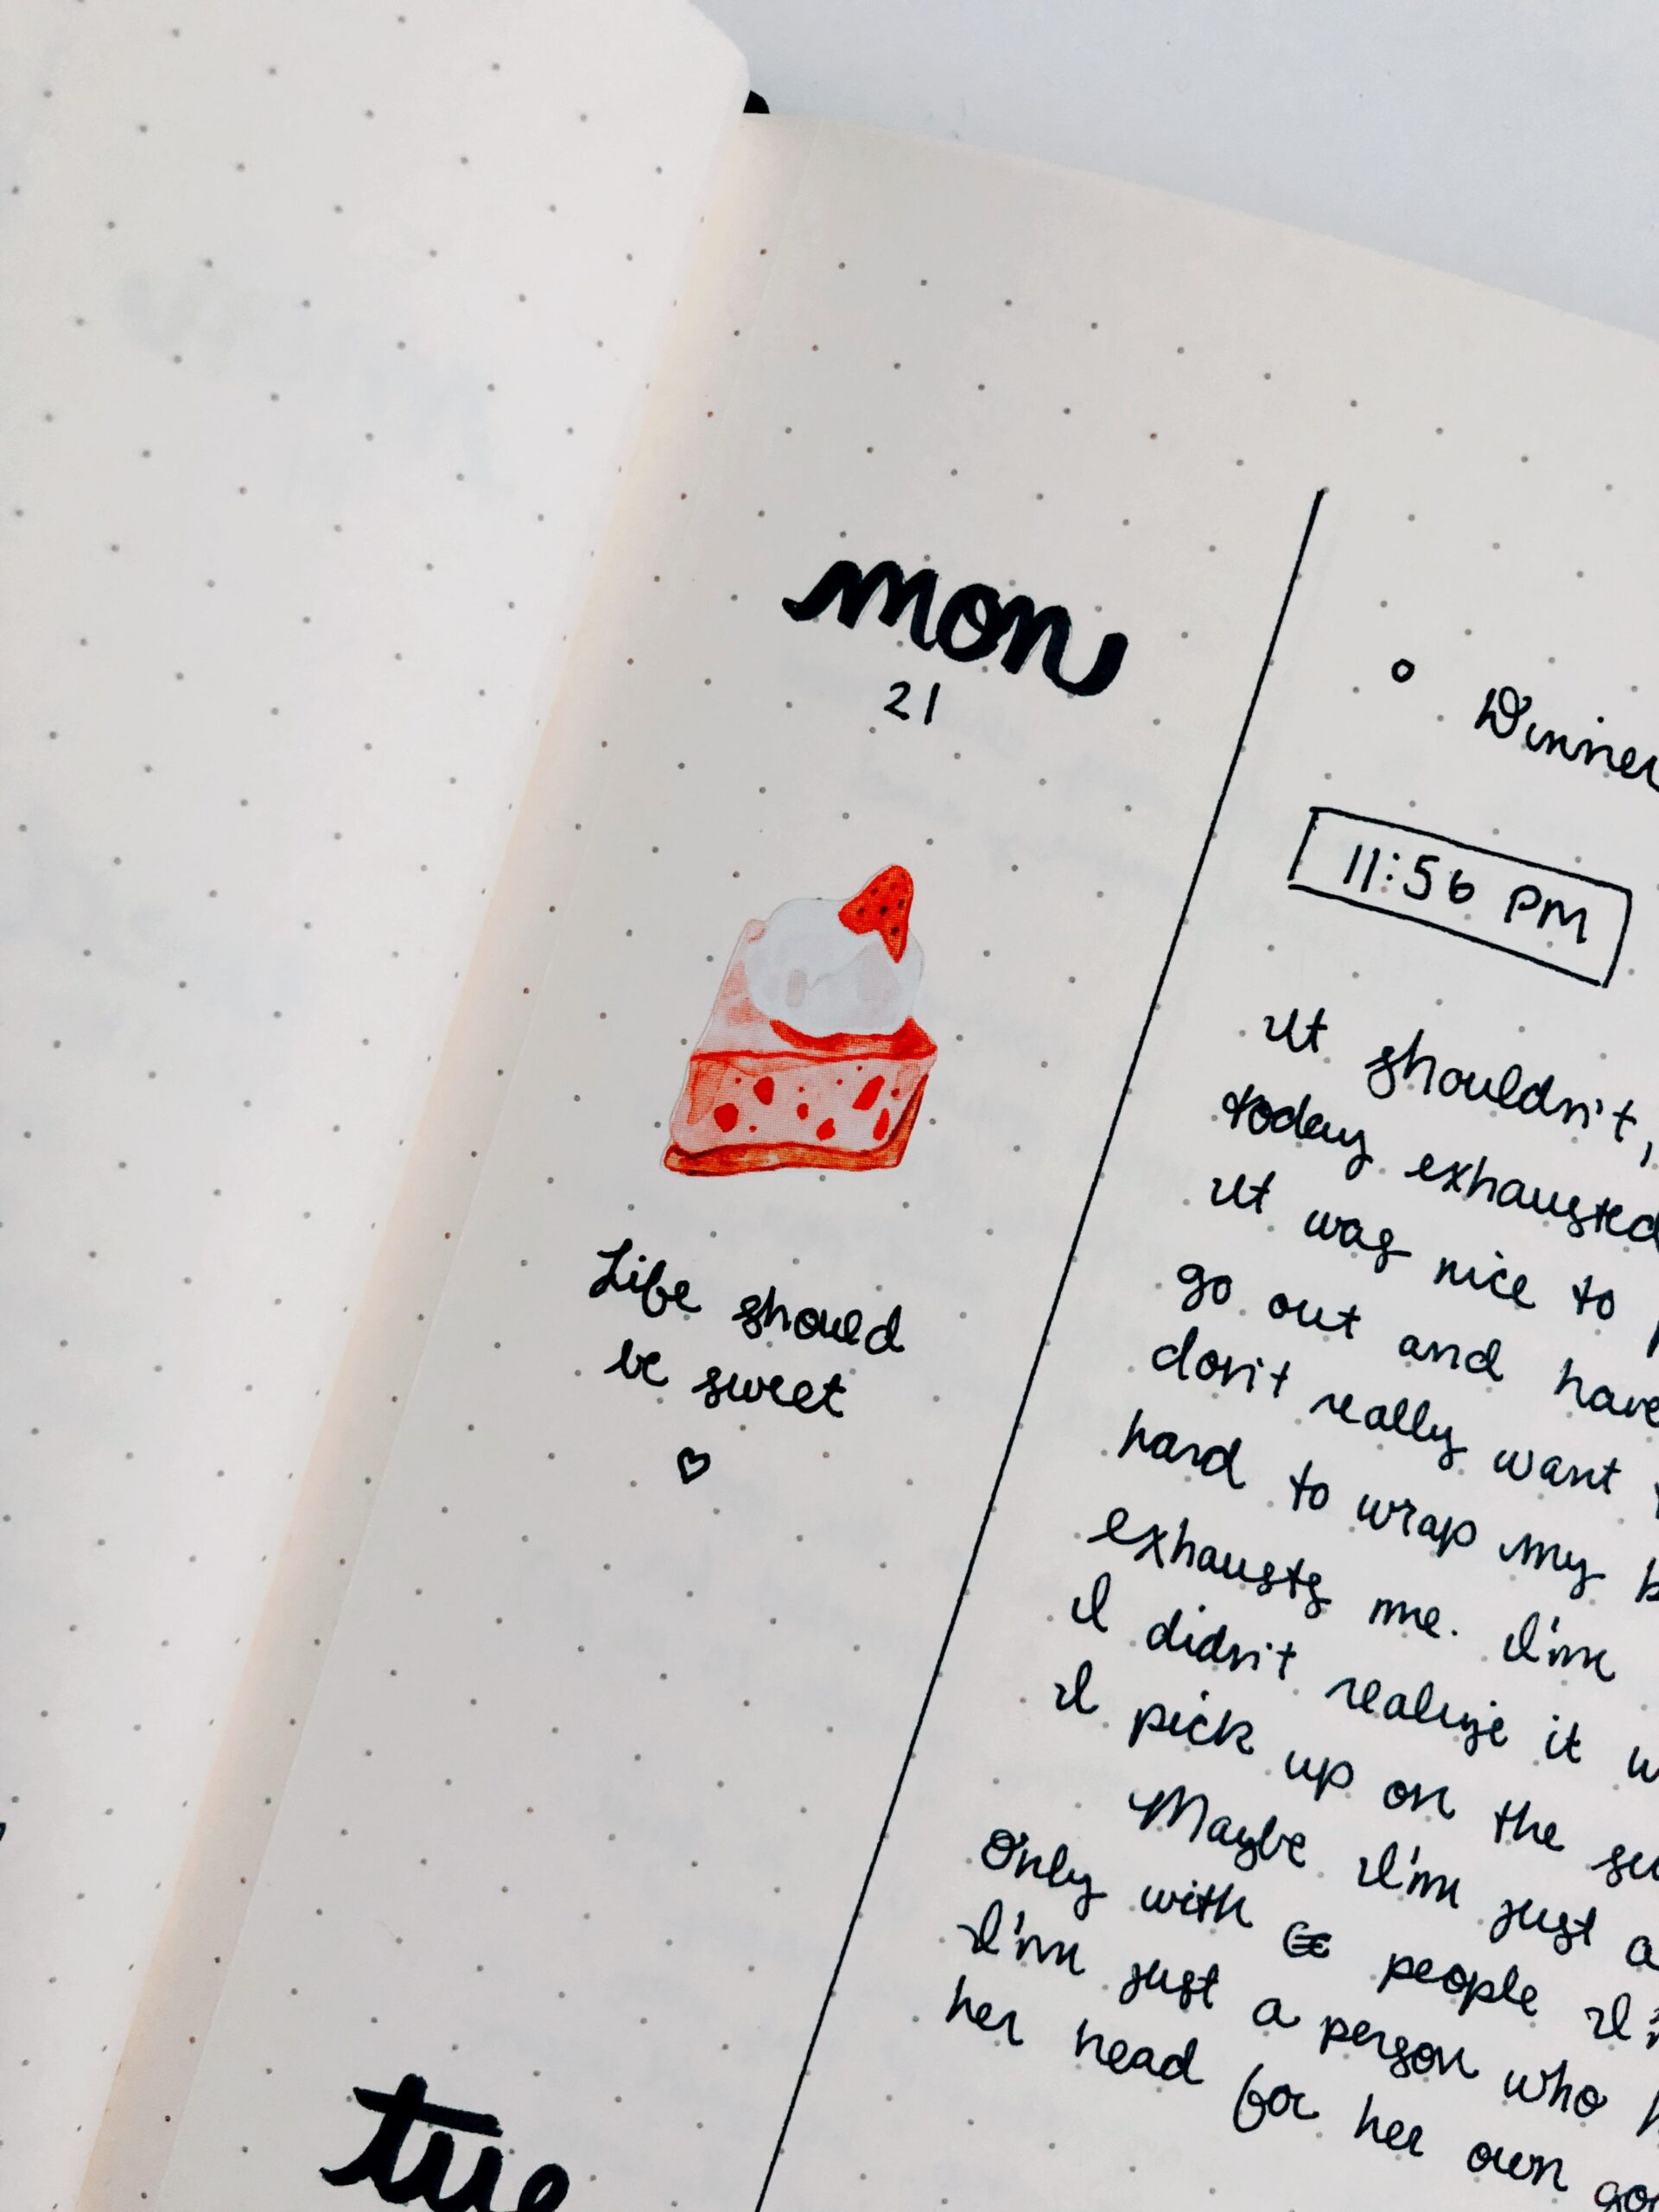 mon
21
Life should
be sweet
tue
Dinner
11:56 PM
It shouldn't,
today exhausted
It was nice to
go out and have
don't really want
hard to wrap my
exhausts me. I'm
I didn't realize it
I pick up on the
Maybe I'm just a
Only with people
I'm just a person who
her head for her own